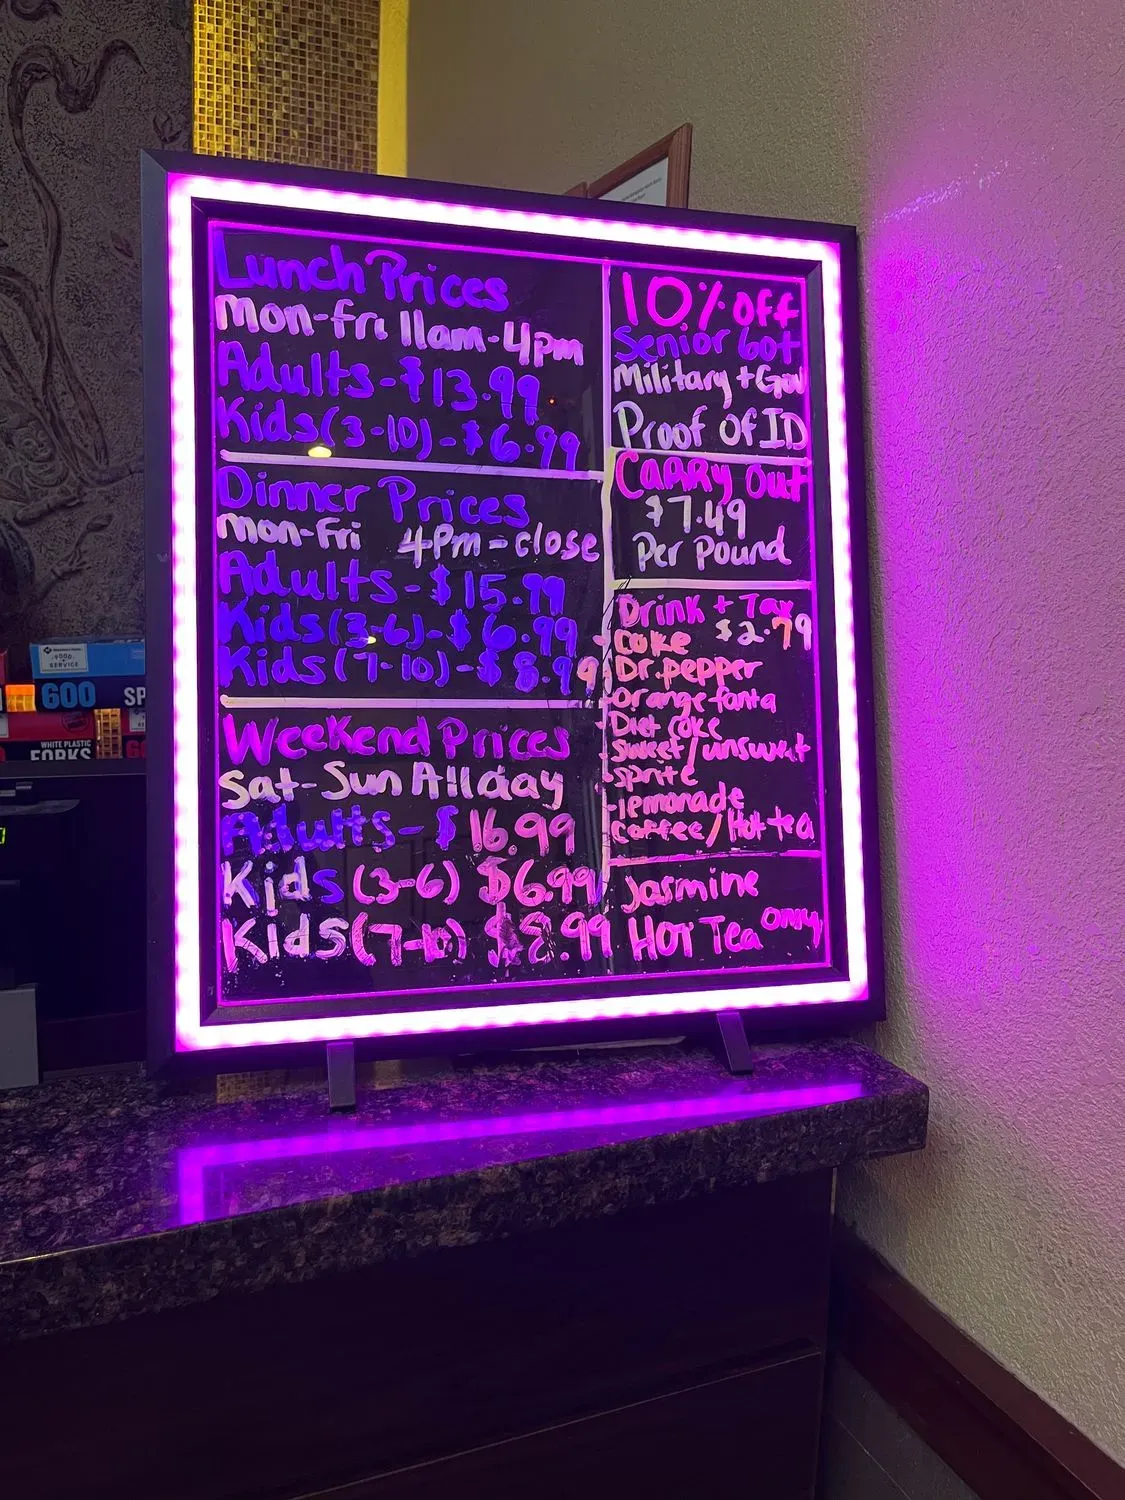 Lunch Prices
Mon-Fri 11am-4pm
Adults-$13.99
Kids(3-10)-$6.99
Dinner Prices
Mon-Fri 4Pm-close
Adults-$15.99
Kids(3-6)-$6.99
Kids(7-10)-$8.99
Weekend Prices
Sat-Sun All day
Adults-$16.99
Kids (3-6) $6.99
Kids(7-10) $8.99
10% off
Senior 60+
Military + Gov
Proof of ID
CARRY Out
$7.49
Per Pound
Drink + Tax
$2.79
Coke
Dr. pepper
Orange fanta
Diet coke
Sweet/unsweet
sprite
lemonade
Coffee/Hot tea
Jasmine
Hot Tea only
600
SP
WHITE PLASTIC
FORKS
SERVICE